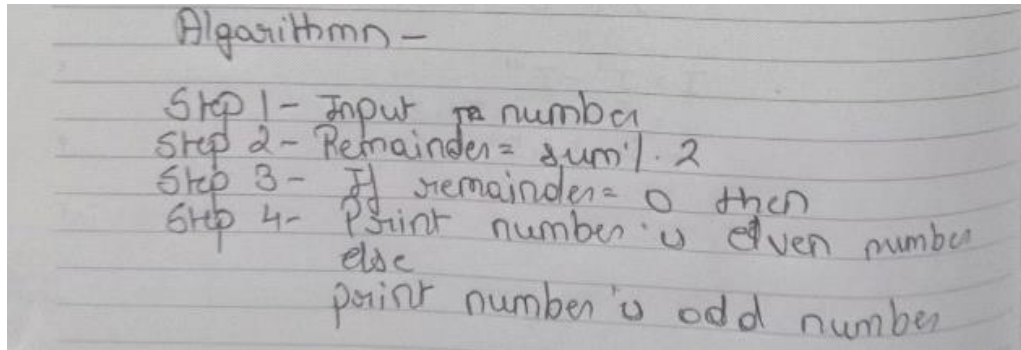 Algorithmn -
Step 1 - Input a number
Step 2 - Remainder = sum % 2
Step 3 - If remainder = 0 then
Step 4 - Print number is even number
else
print number is odd number